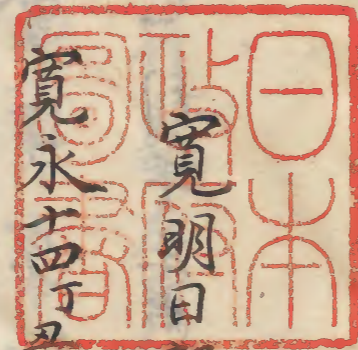 日本
政府
圖書
寛明日
寛永十四丁丑